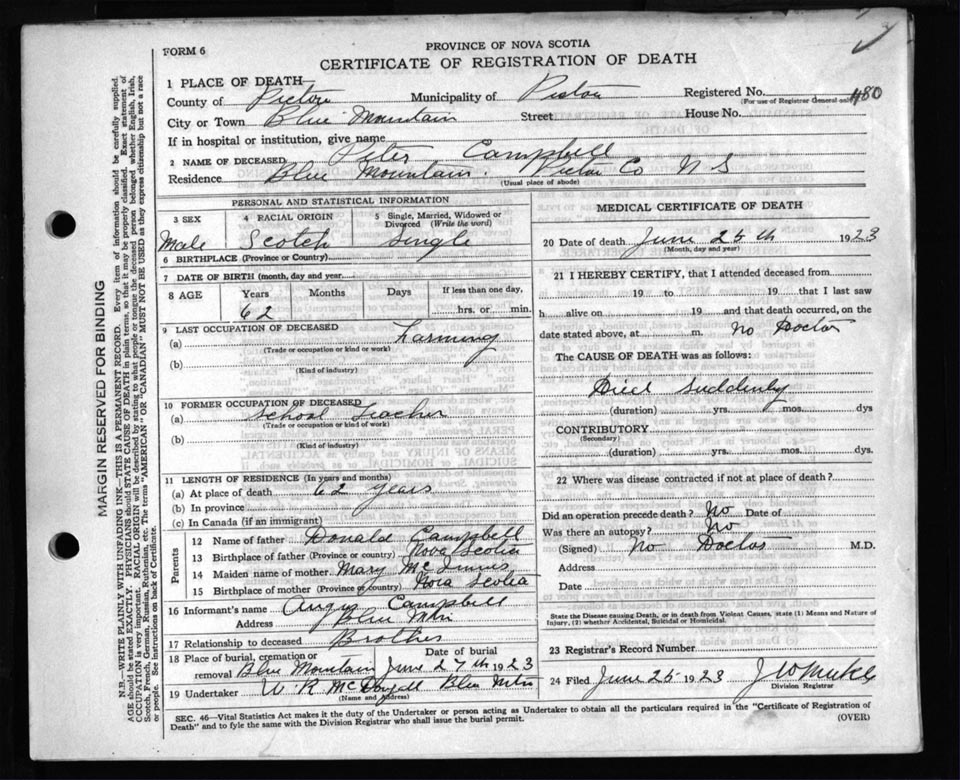 FORM 6
PROVINCE OF NOVA SCOTIA
CERTIFICATE OF REGISTRATION OF DEATH
1 PLACE OF DEATH
County of Pictou Municipality of Pictou Registered No. 480
(For use of Registrar General only)
City or Town Blue Mountain Street House No.
If in hospital or institution, give name
2 NAME OF DECEASED Peter Campbell
Residence Blue Mountain. Pictou Co N S
(Usual place of abode)
PERSONAL AND STATISTICAL INFORMATION
3 SEX 4 RACIAL ORIGIN 5 Single, Married, Widowed or Divorced (Write the word)
Male Scotch Single
6 BIRTHPLACE (Province or Country)
7 DATE OF BIRTH (month, day and year)
8 AGE Years Months Days If less than one day,
62 hrs. or min.
9 LAST OCCUPATION OF DECEASED
(a) Farming
(Trade or occupation or kind or work)
(b)
(Kind of industry)
10 FORMER OCCUPATION OF DECEASED
(a) School Teacher
(Trade or occupation or kind of work)
(b)
(Kind of industry)
11 LENGTH OF RESIDENCE (In years and months)
(a) At place of death 62 years
(b) In province
(c) In Canada (if an immigrant)
Parents
12 Name of father Donald Campbell
13 Birthplace of father (Province or country) Nova Scotia
14 Maiden name of mother Mary McInnis
15 Birthplace of mother (Province or country) Nova Scotia
16 Informant's name Angus Campbell
Address Blue Mtn
17 Relationship to deceased Brother
18 Place of burial, cremation or removal Blue Mountain Date of burial June 27th 1923
19 Undertaker W R McDougall Blue Mtn
(Name and Address)
MEDICAL CERTIFICATE OF DEATH
20 Date of death June 25th 1923
(Month, day and year)
21 I HEREBY CERTIFY, that I attended deceased from
19 to 19 that I last saw
h alive on 19 and that death occurred, on the
date stated above, at m. No Doctor
The CAUSE OF DEATH was as follows:
Died Suddenly
(duration) yrs. mos. dys
CONTRIBUTORY
(Secondary)
(duration) yrs. mos. dys.
22 Where was disease contracted if not at place of death?
Did an operation precede death? No Date of
Was there an autopsy? No
(Signed) No Doctor M.D.
Address
Date
State the Disease causing Death, or in death from Violent Causes, state (1) Means and Nature of
Injury, (2) whether Accidental, Suicidal or Homicidal.
23 Registrar's Record Number
24 Filed June 25 1923
Division Registrar
SEC. 46—Vital Statistics Act makes it the duty of the Undertaker or person acting as Undertaker to obtain all the particulars required in the "Certificate of Registration of
Death" and to fyle the same with the Division Registrar who shall issue the burial permit.
(OVER)
MARGIN RESERVED FOR BINDING
N.B.—WRITE PLAINLY WITH UNFADING INK—THIS IS A PERMANENT RECORD. Every item of information should be carefully supplied.
AGE should be stated EXACTLY. PHYSICIANS should STATE CAUSE OF DEATH in plain terms, so that it may be properly classified. Exact statement of
OCCUPATION is very important. RACIAL ORIGIN will be described by stating to what people or tongue the deceased person belonged whether English, Irish,
Scotch, French, German, Russian, Ruthenian, etc. The terms "AMERICAN" OR "CANADIAN" MUST NOT BE USED as they express citizenship but not a race
or people. See instructions on back of Certificate.